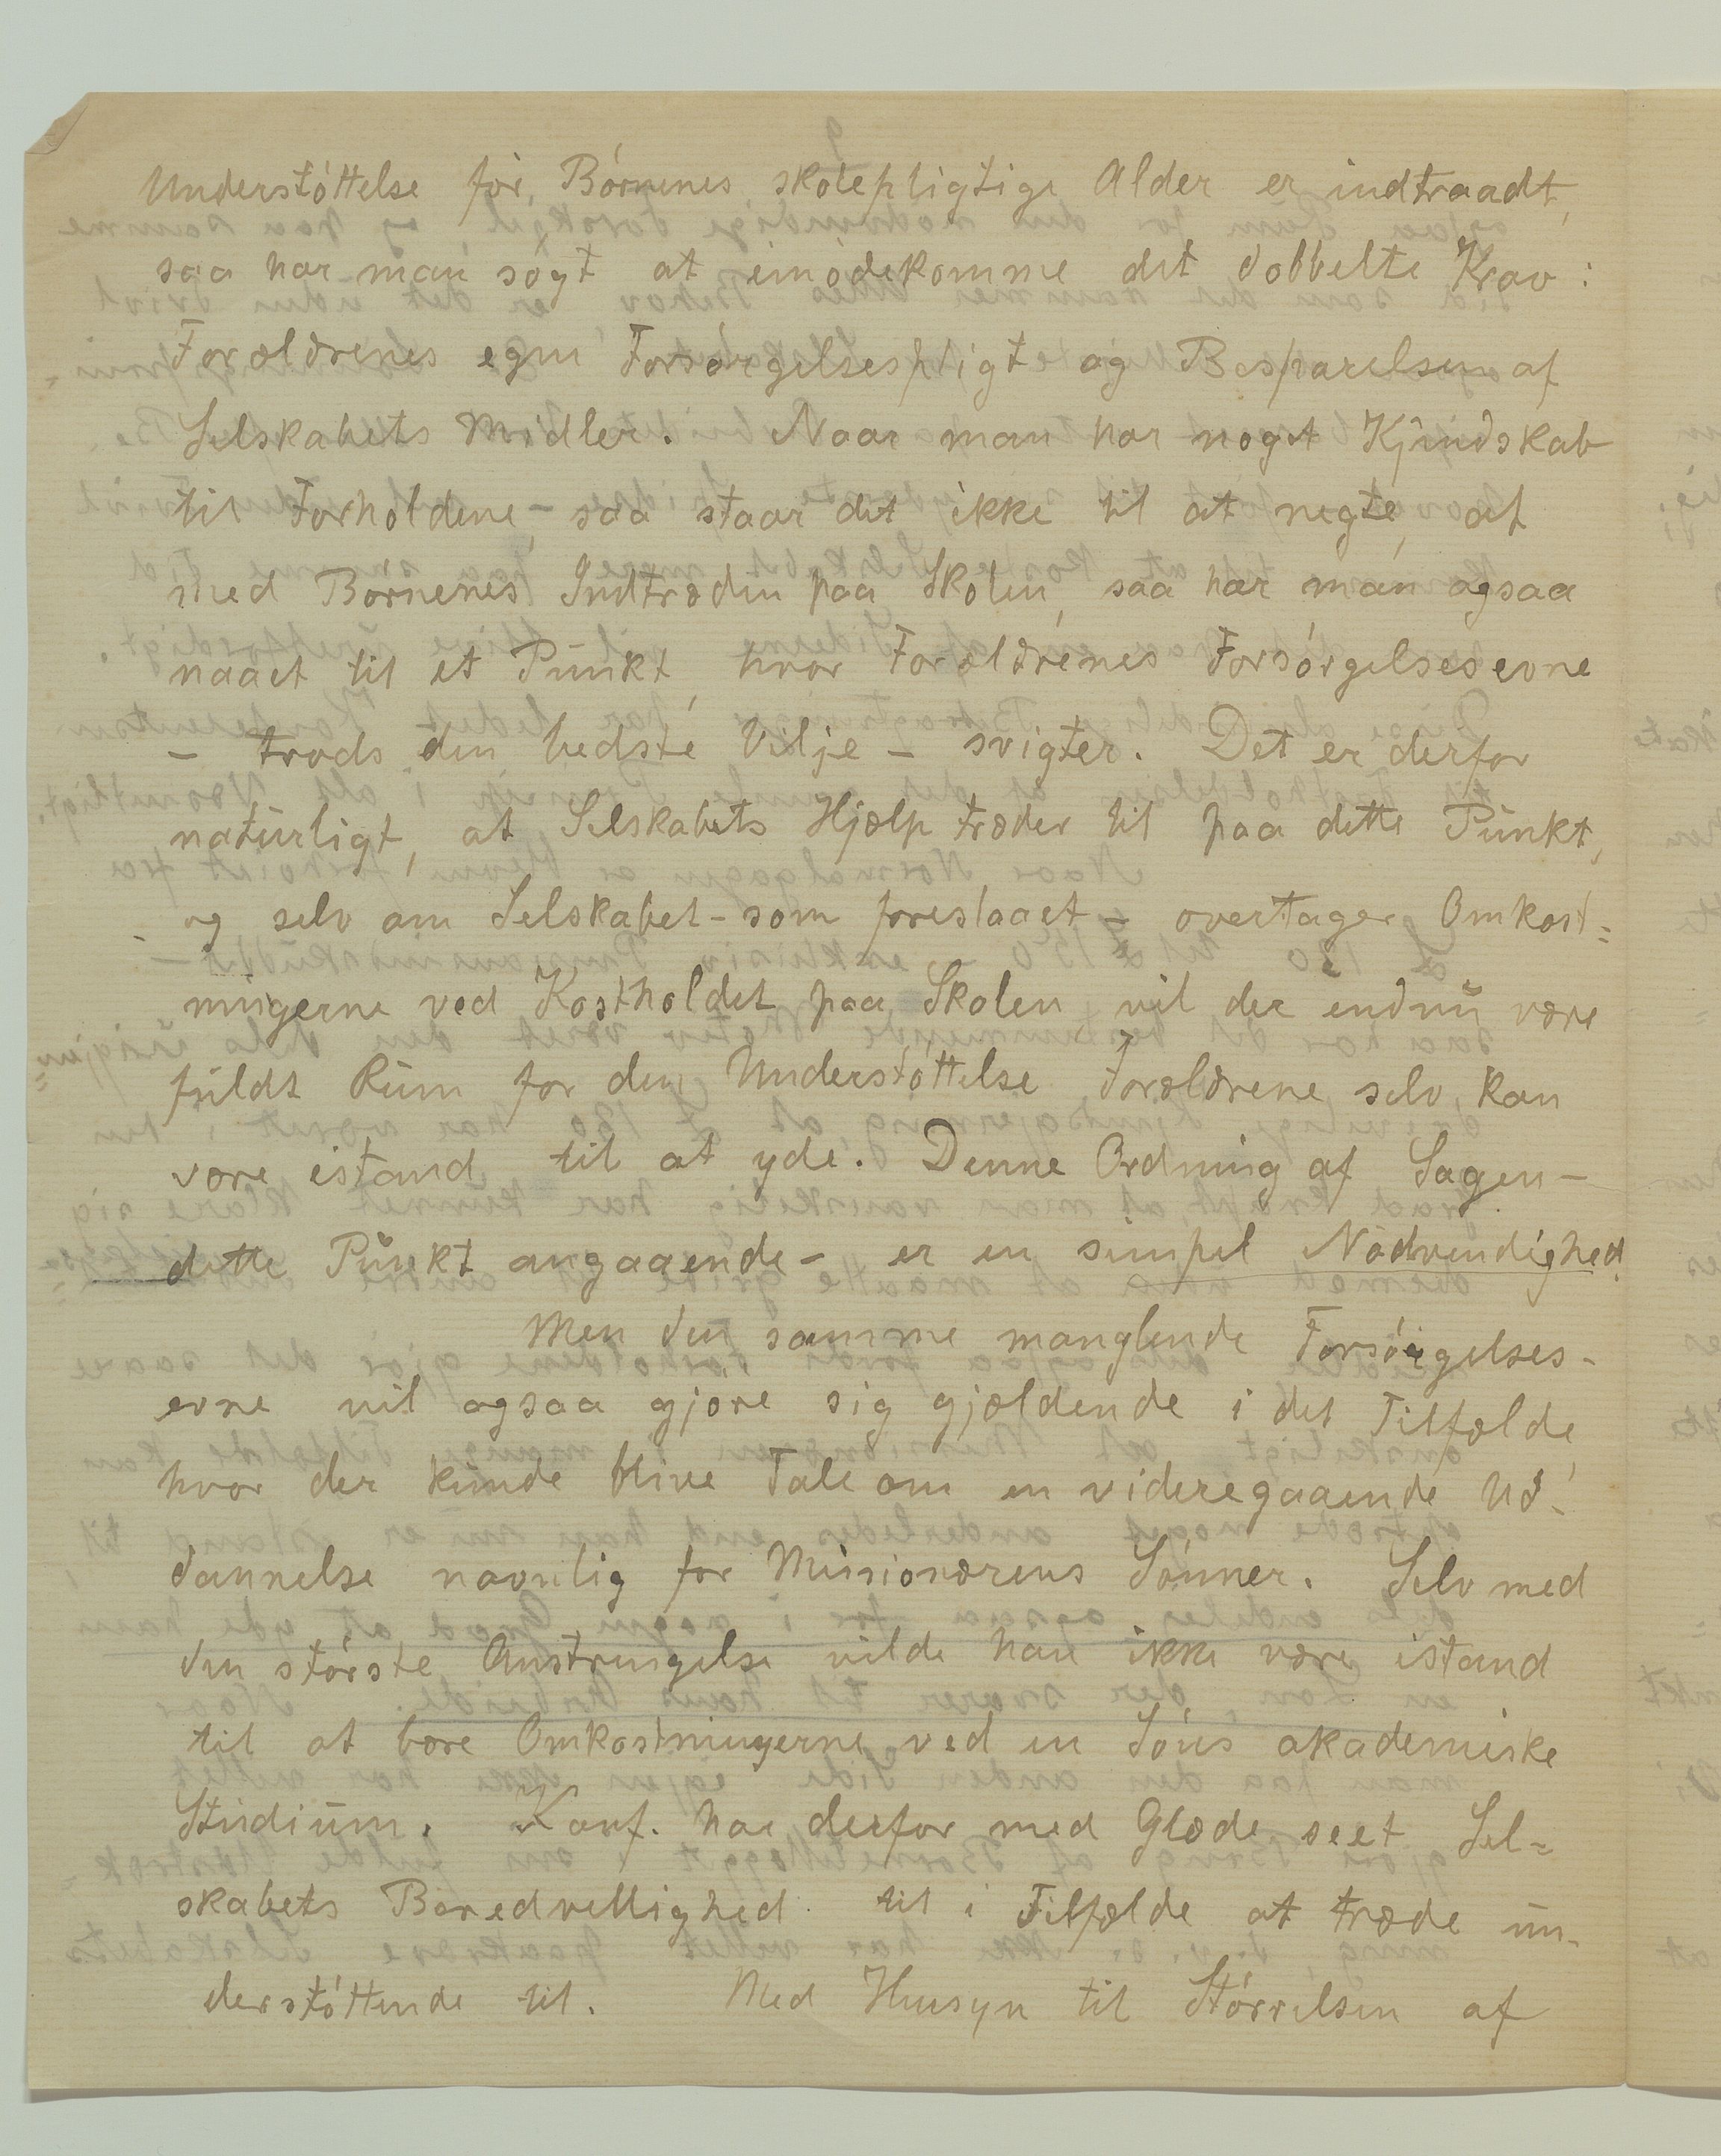 Understöttelse för Börnenes skolepligtige Alder er indtraadt,
saa har man sögt at imödekomme det dobbelte Krav:
Forældrenes egen Forsörgelsespligt og Besparelsen af
Selskabets Midler. Naar man har noget Kjendskab
til Forholdene, saa staar det ikke til at negte, at
med Börnenes Indtræden paa Skolen, saa har man ogsaa
naaet til et Punkt, hvor Forældrenes Forsörgelsesevne
- trods den bedste Vilje - svigter. Det er derfor
naturligt, at Selskabets Hjælp træder til paa dette Punkt,
og selv om Selskabet - som foreslaaet - overtager Omkost=
ningerne ved Kostholdet paa Skolen vil der endnu være
fuldt Rum for den Understöttelse Forældrene selv kan
være istand til at yde. Denne Ordning af Sagen -
dette Punkt angaaende - er en simpel Nödvendighed.
Men den samme manglende Forsörgelses-
evne vil ogsaa gjöre sig gjældende i det Tilfælde,
hvor der kunde blive Tale om en videregaaende Ud-
dannelse navnlig for Missionærens Sönner. Selv med
den störste Anstrengelse vilde han ikke være istand
til at bære Omkostningerne ved en Söns akademiske
Studium. Konf. har derfor med Glæde seet Sel=
skabets Beredvillighed til i Tilfælde at træde un-
derstöttende til. Med Hensyn til Störrelsen af